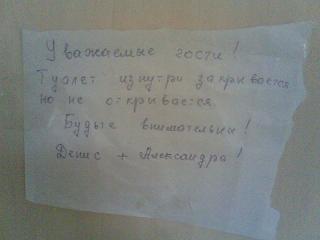 Уважаемые гости!
Туалет изнутри закрывается
но не открывается.
Будьте внимательны!
Денис + Александра!